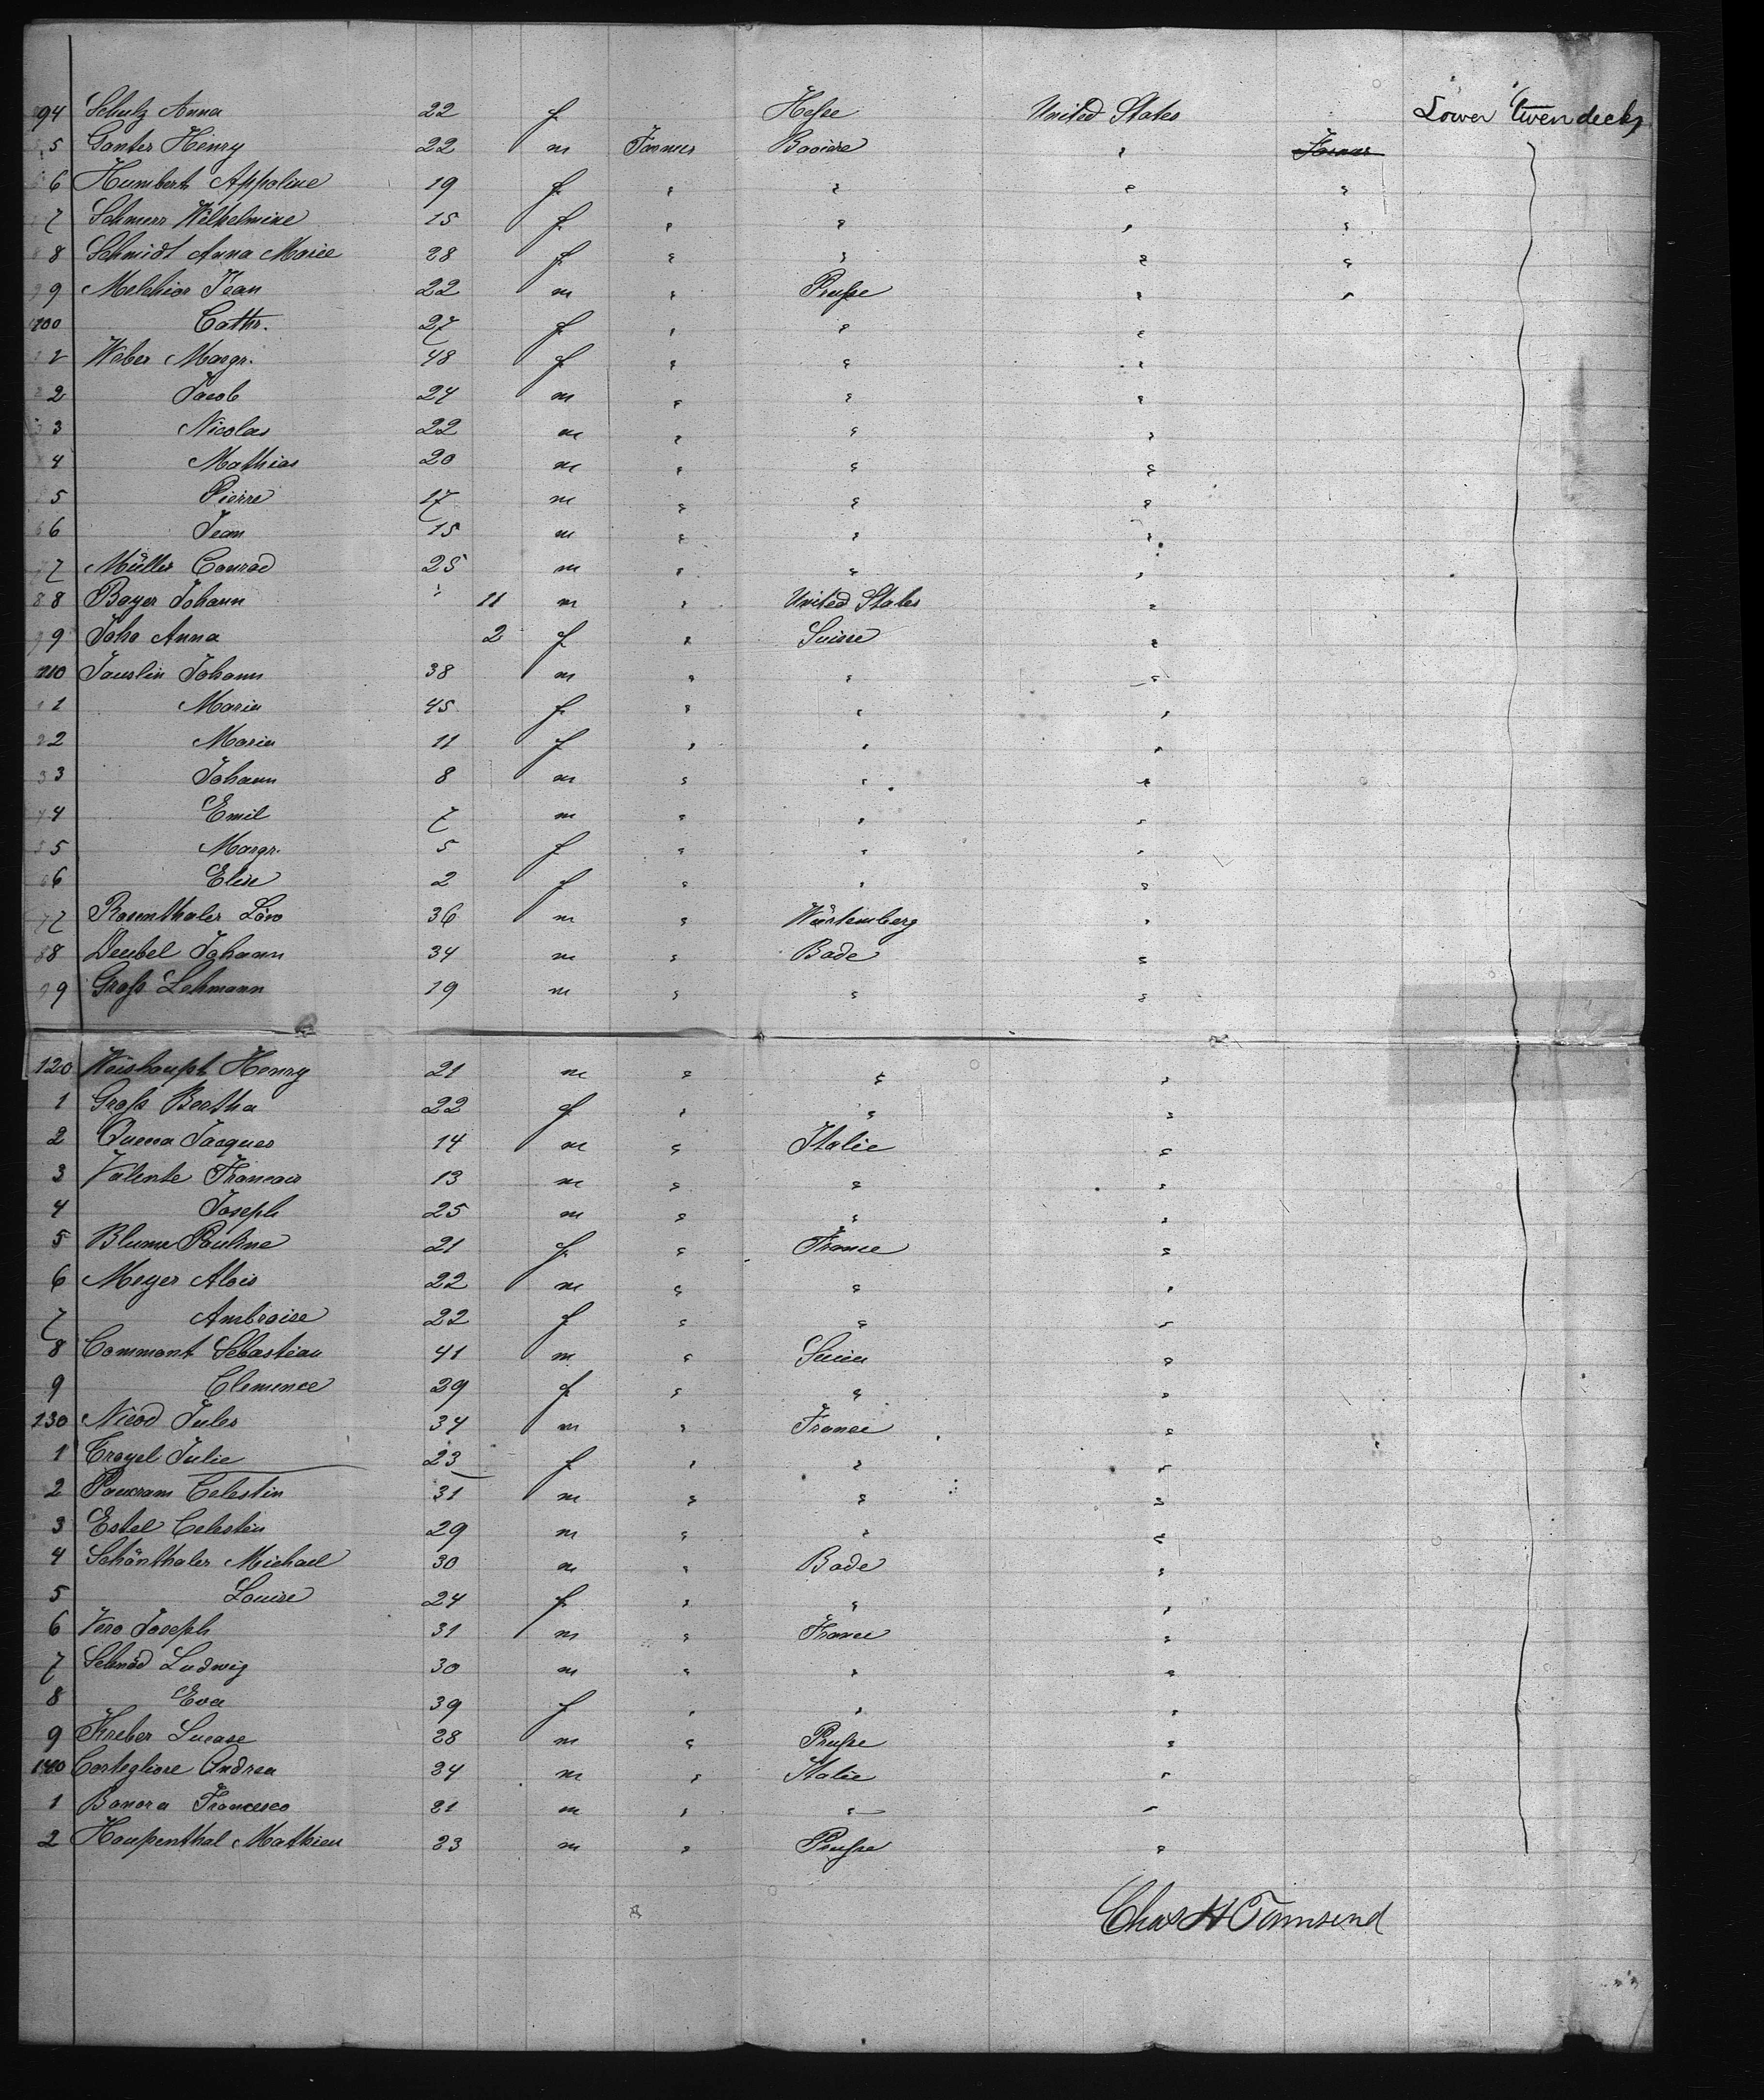 94 Schulz Anna 22 f Hesse United States Lower 'tween decks
5 Ganter Henry 22 m Farmer Baviere " Farmer
6 Humbert Appoline 19 f " " " "
7 Schnurr Wilhelmine 15 f " " " "
8 Schmidt Anna Marie 28 f " " " "
9 Melchior Jean 22 m " Prusse " "
100 Cathr. 27 f " " "
1 Weber Margr. 48 f " " "
2 Jacob 24 m " " "
3 Nicolas 22 m " " "
4 Mathias 20 m " " "
5 Pierre 17 m " " "
6 Jean 15 m " " "
7 Müller Conrad 25 m " " "
8 Bayer Johann " 11 m " United States "
9 Joho Anna 2 f " Suisse "
110 Tauslin Johann 38 m " " "
1 Maria 45 f " " "
2 Maria 11 f " " "
3 Johann 8 m " " "
4 Emil 7 m " " "
5 Margr. 5 f " " "
6 Elise 2 f " " "
7 Rosenthaler Löw 36 m " Würtemberg "
8 Deubel Johann 34 m " Bade "
9 Groß Lehmann 19 m " " "
120 Weishaupt Henry 21 m " " "
1 Groß Bertha 22 f " " "
2 Jacques 14 m " Italie "
3 Valente Francois 13 m " " "
4 Joseph 25 m " " "
5 Blume Pauline 21 f " France "
6 Meyer Alois 22 m " " "
7 Ambroise 22 f " " "
8 Commont Sebastian 41 m " "
9 Clemence 29 f " " "
130 Nicod Jules 34 m " France "
1 Troyel Julie 23 f " " "
2 Celestin 31 m " " "
3 Estel Celestin 29 m " " "
4 Schönthaler Michael 30 m " Bade "
5 Louise 24 f " " "
6 Vero Joseph 31 m " France "
7 Ludwig 30 m " " "
8 Eva 39 f " " "
9 Lucase 28 m " Prusse "
140 Cortegliore Andrea 24 m " Italie "
1 Bonora Francesco 21 m " " "
2 Haupenthal Mathieu 23 m " Prusse "
Chas H Townsend